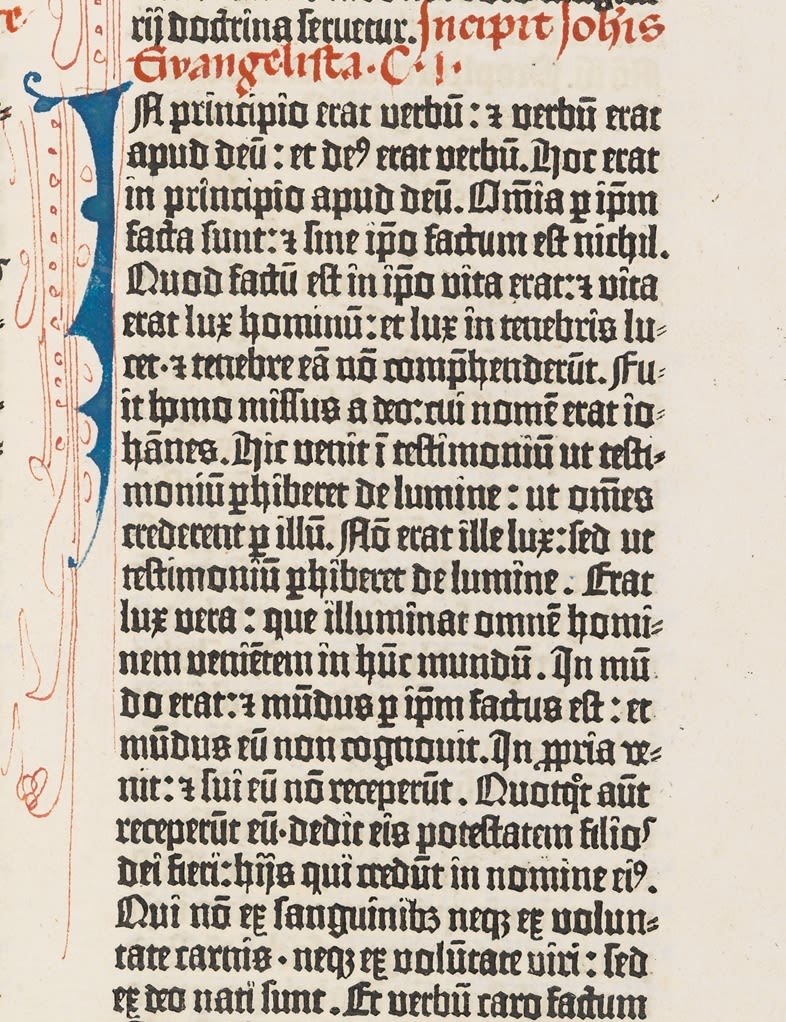 rij doctrina seruetur. Incipit Joh̄is
Evangelista · C · I ·
IN principio erat verbū : ⁊ verbū erat
apud deū : et deꝰ erat verbū. Hoc erat
in principio apud deū. Om̄ia ꝑ ip̄m
facta sunt: ⁊ sine ip̄o factum est nichil.
Quod factū est in ip̄o vita erat: ⁊ vita
erat lux hominū: et lux in tenebris lu-
cet · ⁊ tenebre eā nō comp̄henderūt. Fu-
it homo missus a deo: cui nomē erat io-
hānes. Hic venit ī testimoniū ut testi-
moniū ꝑhiberet de lumine : ut om̄es
crederent ꝑ illū. Nō erat ille lux: sed ut
testimoniū ꝑhiberet de lumine . Erat
lux vera : que illuminat omnē homi-
nem veniētem in hūc mundū . In mū
do erat: ⁊ mūdus ꝑ ip̄m factus est : et
mūdus eū non cognouit. In ꝓpria ve-
nit: ⁊ sui eū nō receperūt . Quotqͦt aūt
receperūt eū · dedit eis potestatem filioſ
dei fieri: hijs qui credūt in nomine eiꝰ.
Qui nō ex sanguinibꝫ neqꝫ ex volun-
tate carnis · neqꝫ ex volūtate viri : sed
ex deo nati sunt . Et verbū caro factum